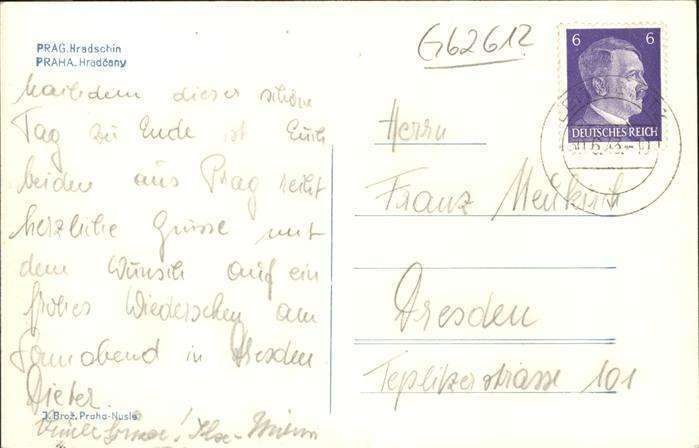 PRAG. Hradschin
PRAHA. Hradčany
G62612
6 6
DEUTSCHES REICH
Nachdem dieser schöne
Tag zu Ende ist Euch
beiden aus Prag recht
herzliche Grüsse mit
dem Wunsch auf ein
frohes Wiedersehen am
Sonnabend in Dresden
Dieter.
Herrn
Franz Neukirch
Dresden
Teplitzerstrasse 101
J. Brož, Praha-Nusle